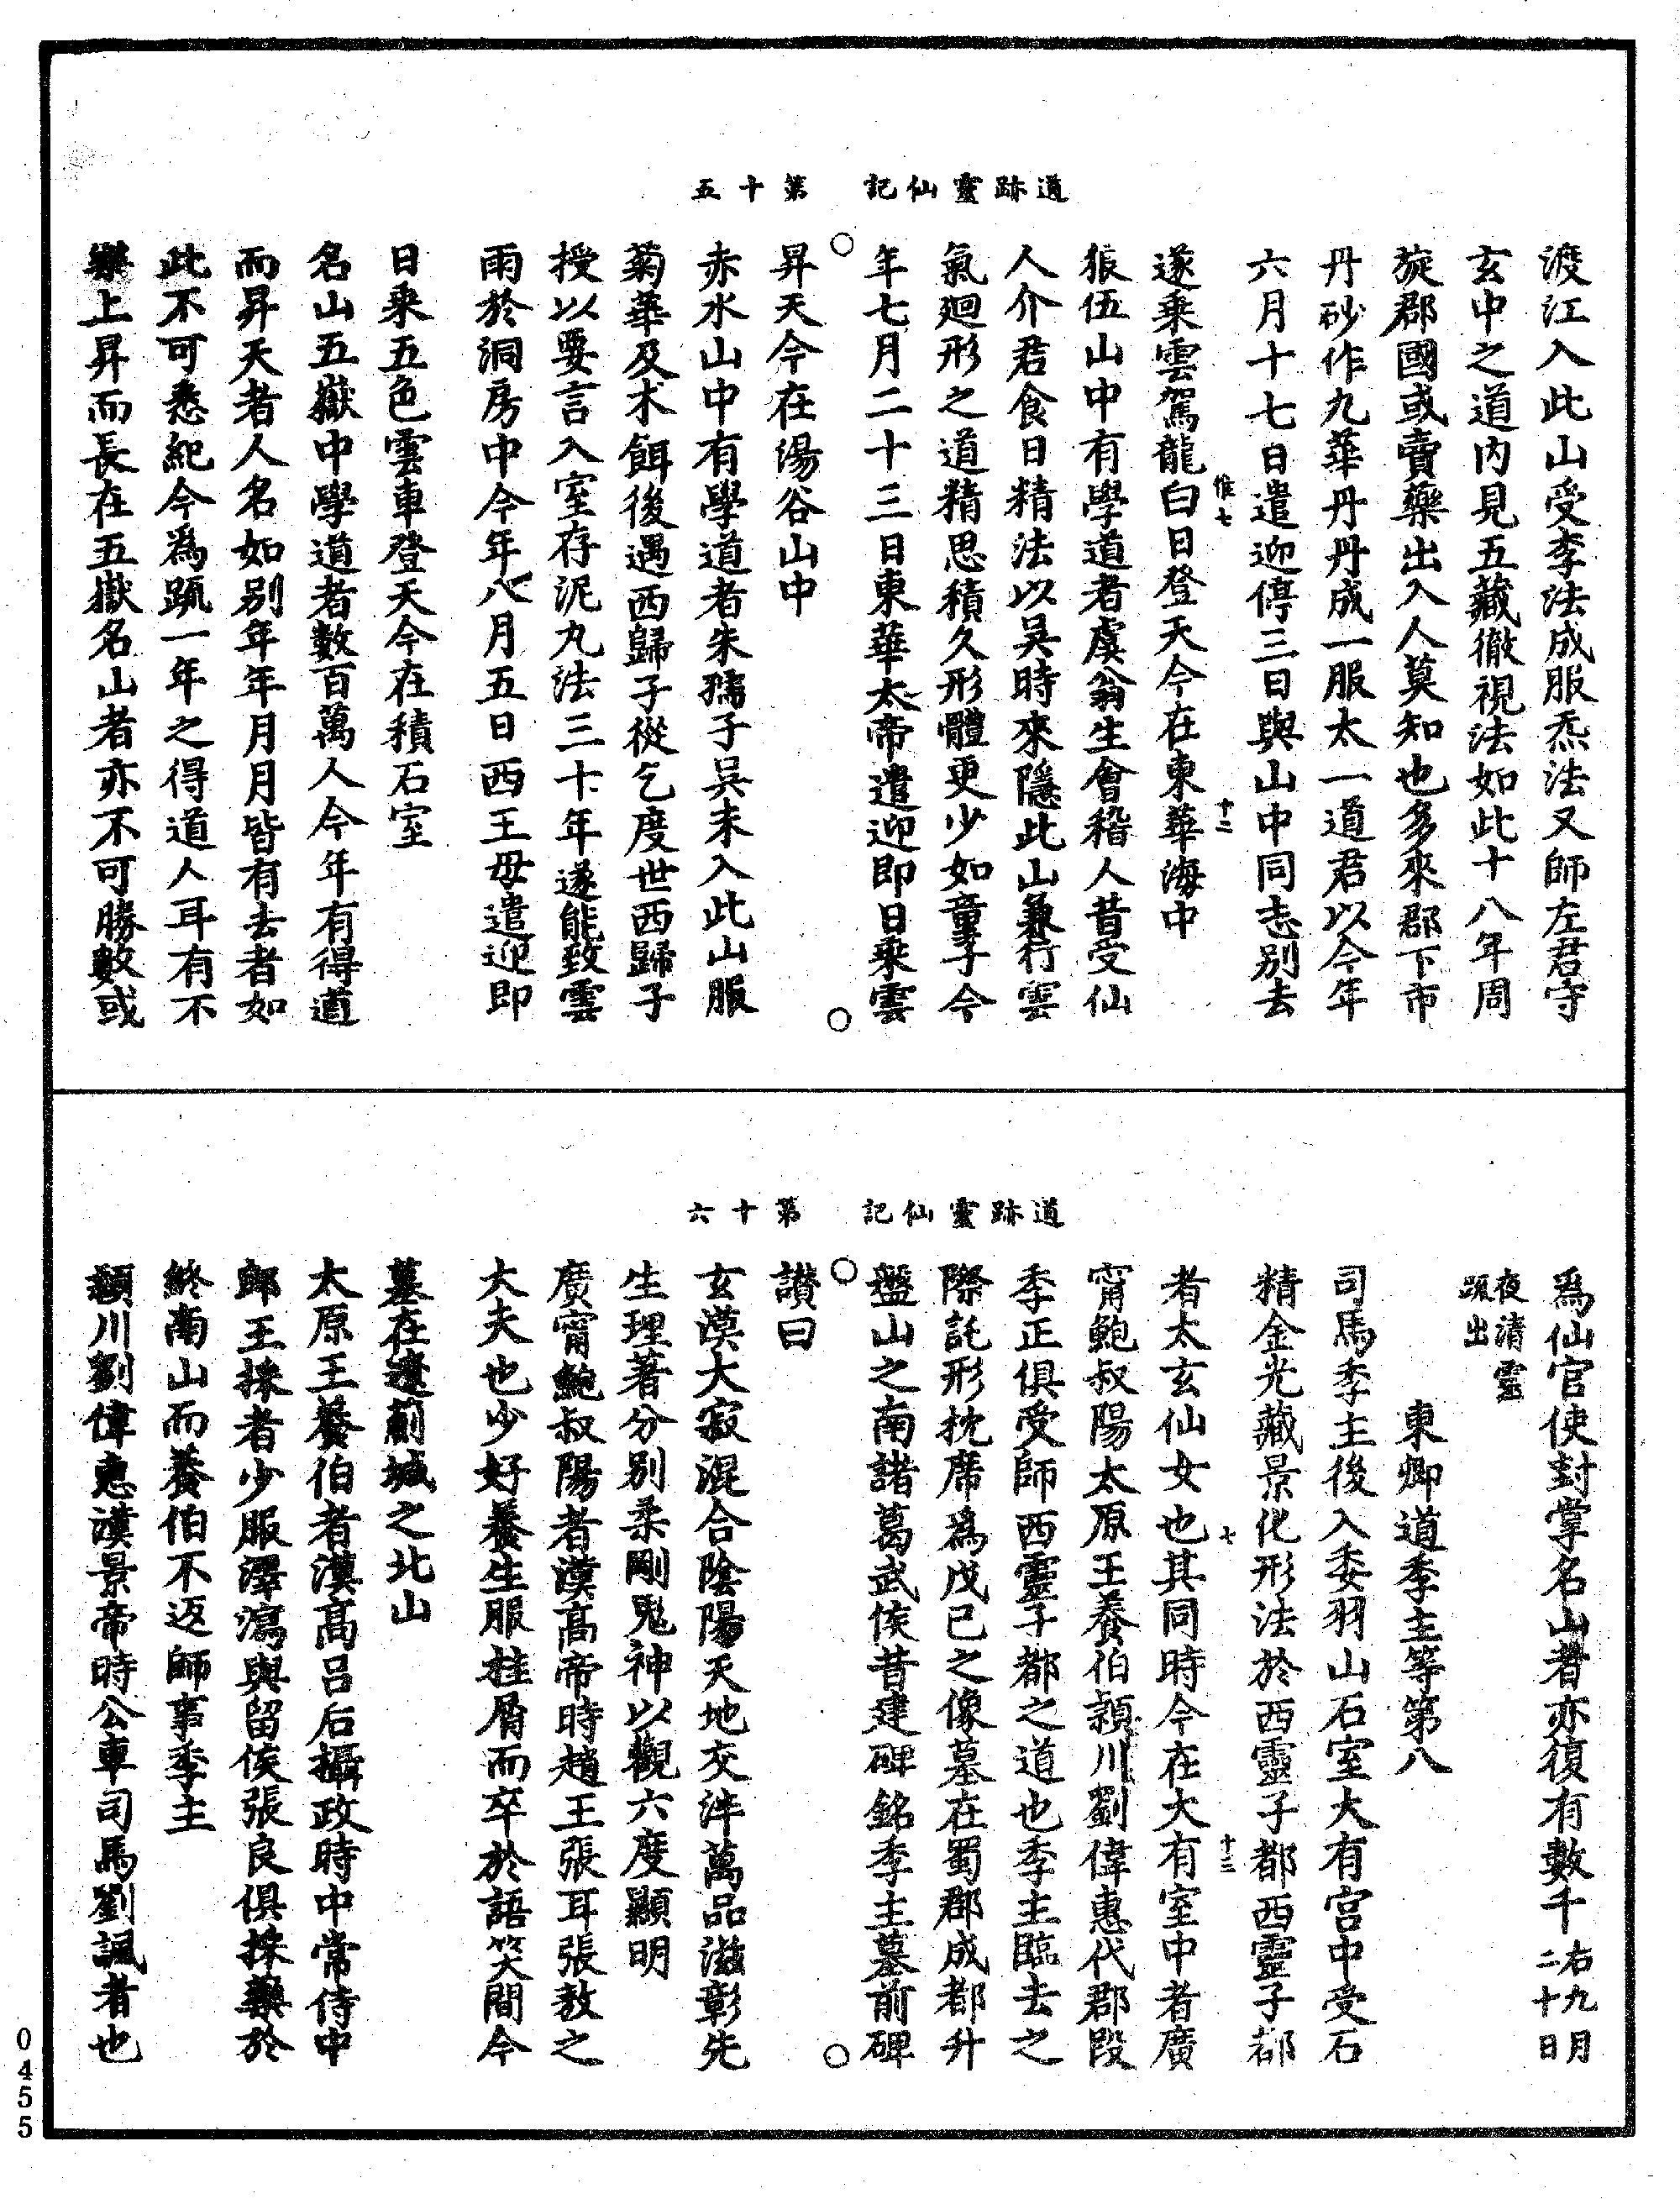 道跡靈仙記　第十五
渡江入此山受李法成服炁法又師左君守
玄中之道内見五藏徹視法如此十八年周
旋郡國或賣藥出入人莫知也多來郡下市
丹砂作九華丹丹成一服太一道君以今年
六月十七日遣迎停三日與山中同志别去
惟七　十二
遂乘雲駕龍白日登天今在東華海中
狼伍山中有學道者虞翁生會稽人昔受仙
人介君食日精法以吳時來隱此山兼行雲
氣迴形之道精思積久形體更少如童子今
年七月二十三日東華太帝遣迎即日乘雲
昇天今在湯谷山中
赤水山中有學道者朱孺子吳末入此山服
菊華及术餌後遇西歸子從乞度世西歸子
授以要言入室存泥丸法三十年遂能致雲
雨於洞房中今年八月五日西王母遣迎即
日乘五色雲車登天今在積石室
名山五嶽中學道者數百萬人今年有得道
而昇天者人名如别年年月月皆有去者如
此不可悉紀今爲䟽一年之得道人耳有不
樂上昇而長在五嶽名山者亦不可勝數或
道跡靈仙記　第十六
爲仙官使封掌名山者亦復有數千右九月二十日
夜清靈䟽出
東卿道季主等第八
司馬季主後入委羽山石室大有宫中受石
精金光藏景化形法於西靈子都西靈子都
七　十三
者太玄仙女也其同時今在大有室中者廣
甯鮑叔陽太原王養伯潁川劉偉惠代郡段
季正俱受師西靈子都之道也季主臨去之
際託形枕席爲戊己之像墓在蜀郡成都升
盤山之南諸葛武侯昔建碑銘季主墓前碑
讃曰
玄漠大寂混合陰陽天地交泮萬品滋彰先
生理著分别柔剛鬼神以觀六度顯明
廣甯鮑叔陽者漢高帝時趙王張耳張敖之
大夫也少好養生服桂屑而卒於語笑間今
墓在遼薊城之北山
太原王養伯者漢高吕后攝政時中常侍中
郎王採者少服澤瀉與留侯張良俱採藥於
終南山而養伯不返師事季主
潁川劉偉惠漢景帝時公車司馬劉諷者也
0455